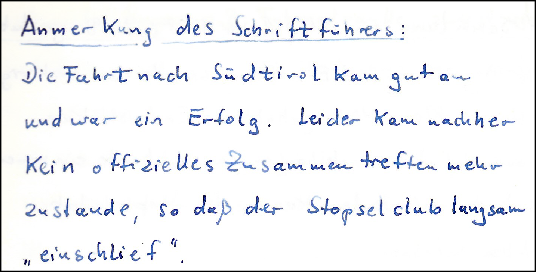 Anmerkung des Schriftführers:
Die Fahrt nach Südtirol kam gut an
und war ein Erfolg. Leider kam nachher
kein offizielles Zusammentreffen mehr
zustande, so daß der Stopselclub langsam
„einschlief".